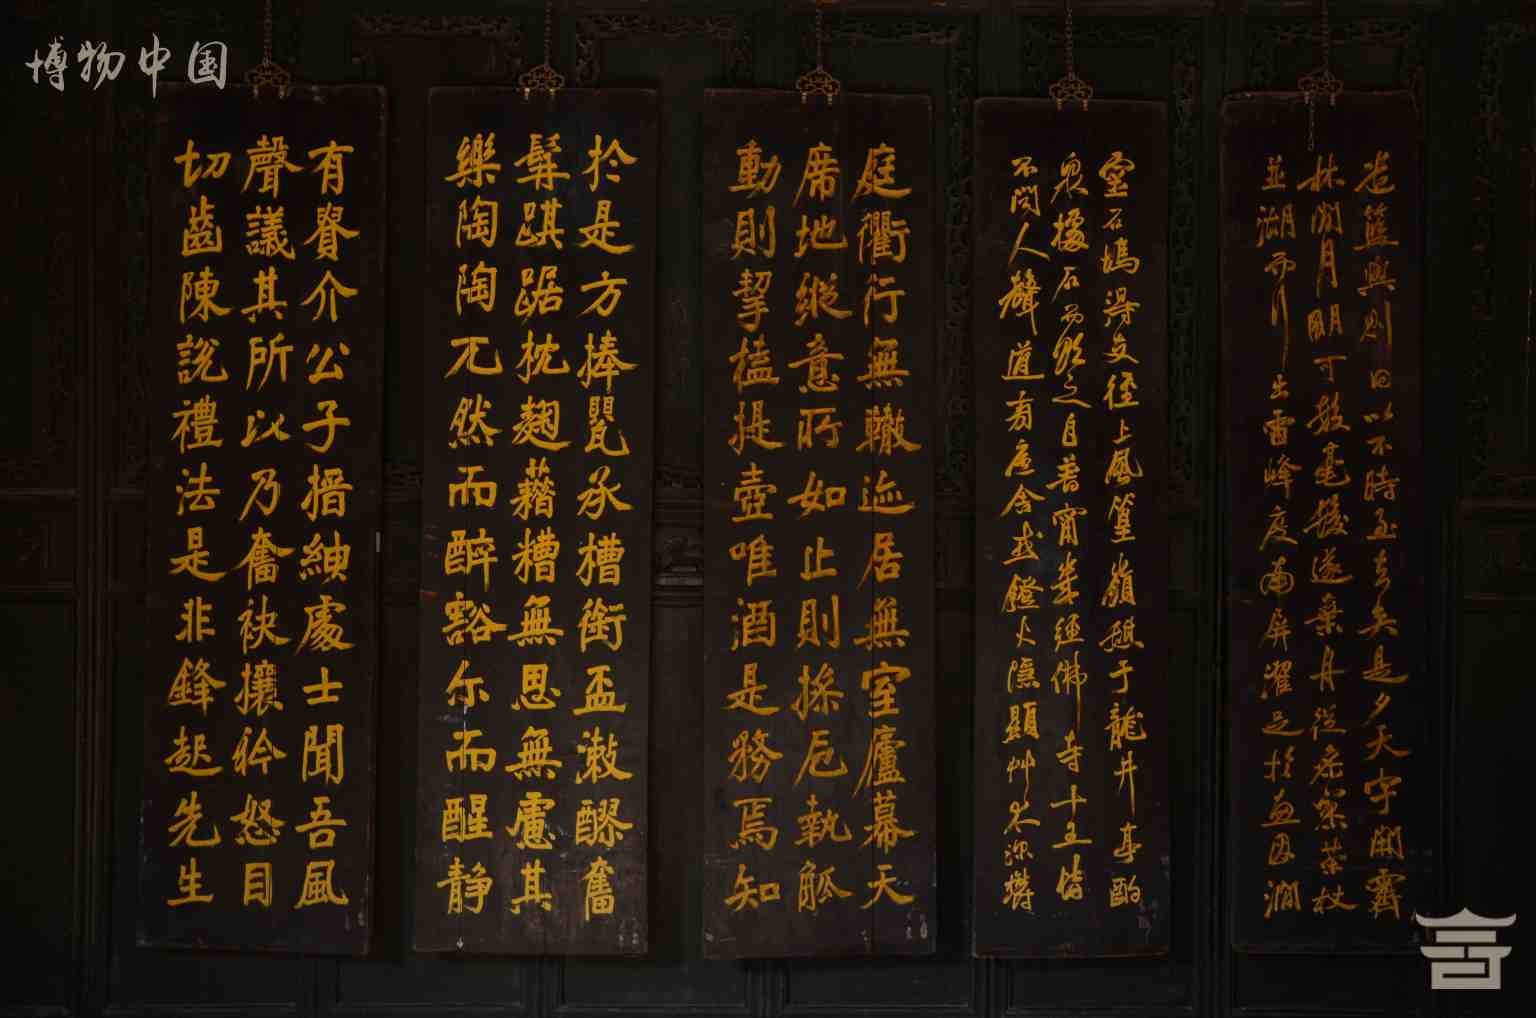 博物中国
遣籃輿則曰以不時至去矣是夕天宇開霽
林間月明可數毫髮遂棄舟從參寥策杖
並湖而行出雷峰度南屏濯足於惠因澗
靈石塢得支徑上風篁嶺憩于龍井亭酌
泉據石而飲之自普甯凡經佛寺十五皆
不聞人聲道旁廬舍或燈火隱顯艸木深鬱
庭衢行無轍迹居無室廬幕天
席地縱意所如止則操卮執觚
動則挈榼提壺唯酒是務焉知
於是方捧甖承槽銜盃漱醪奮
髯踑踞枕麴藉糟無思無慮其
樂陶陶兀然而醉豁尔而醒静
有貴介公子搢紳處士聞吾風
聲議其所以乃奮袂攘衿怒目
切齒陳說禮法是非鋒起先生